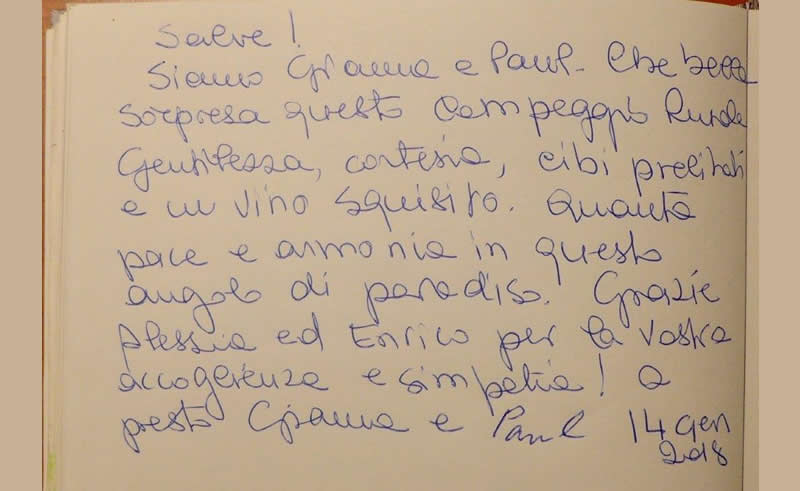 Salve!
Siamo Gianna e Paul. Che bella
sorpresa questo Campeggio Rurale
Gentilezza, cortesia, cibi prelibati
e un vino squisito. Quanta
pace e armonia in questo
angolo di paradiso. Grazie
Alessia ed Enrico per la vostra
accoglienza e simpatia! a
presto Gianna e Paul 14 Gen
2018